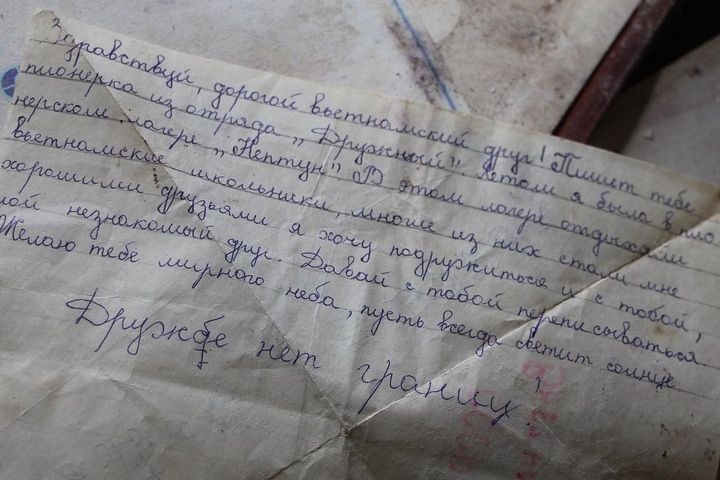 Здравствуй, дорогой вьетнамский друг! Пишет тебе
пионерка из отряда „Дружный". Летом я была в пио
нерском лагере „Нептун". В этом лагере отдыхали
вьетнамские школьники, многие из них стали мне
хорошими друзьями я хочу подружиться и с тобой,
мой незнакомый друг. Давай с тобой переписываться.
Желаю тебе мирного неба, пусть всегда светит солнце
Дружбе нет границ!